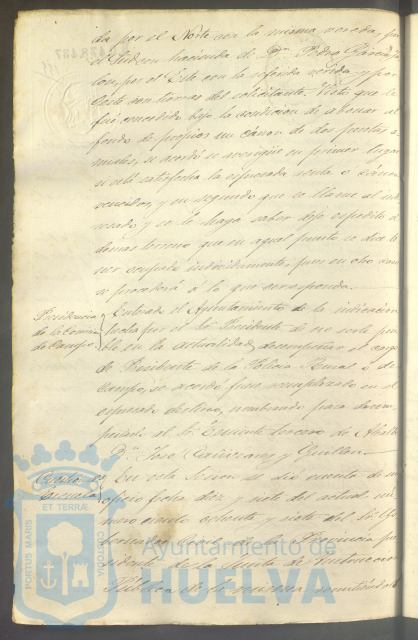 da por el Norte con la misma vereda, por
el Sud con hacienda de Dn. Pedro Garcia
por el Este con la referida vereda y por
Oeste con tierras del solicitante. Visto que le
fué concedido bajo la condicion de abonar al
fondo de propios un cánon de dos pesetas a-
nuales, se acordó se averigüe en primer lugar
si está satisfecha la espresada renta o cánones
vencidos, y en segundo que se llame al inte-
resado y se le haga saber deje espedito
demas terreno que en aquel punto se dice
ser ocupado indevidamente, pues en otro caso
se procederá á lo que corresponda.
Presidencia
de la Comision
de Campo
Enterado el Ayuntamiento de la indicacion
hecha por el Sr. Presidente de no serle posi-
ble en la actualidad desempeñar el cargo
de Presidente de la Policia Rural ó de
Campo, se acordó fuese reemplazado en el
espresado destino, nombrando para desem-
peñarlo al Sr. Teniente tercero de Alcalde
Dn. José
En esta sesion se dió cuenta de un
oficio fecha diez y siete del actual nú-
mero ciento ochenta y siete del Sr. Go-
bernador Civil de la Provincia pre-
sidente de la Junta de Instruccion
Pública de la misma, remitiendo
PORTUS MARIS ET TERRÆ CUSTODIA
Ayuntamiento de
HUELVA